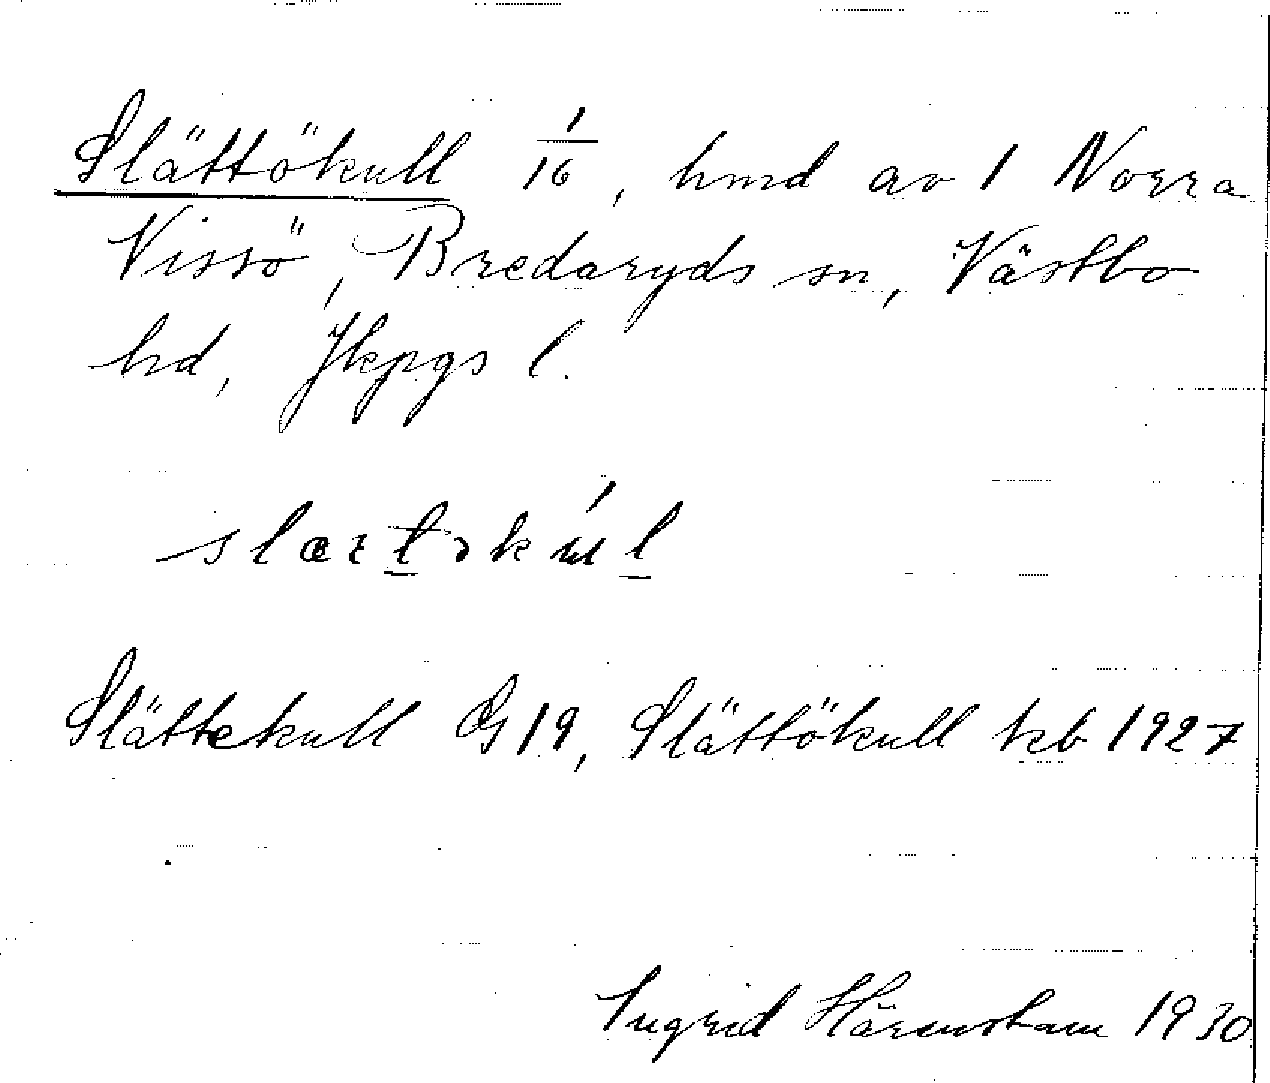 Slättökull 1/16, hmd av 1 Norra
Vissö, Bredaryds sn, Västbo
hd, Jkpgs l.
Slättekull GS 19, Slättökull kb 1927
Ingrid Härenstam 1930